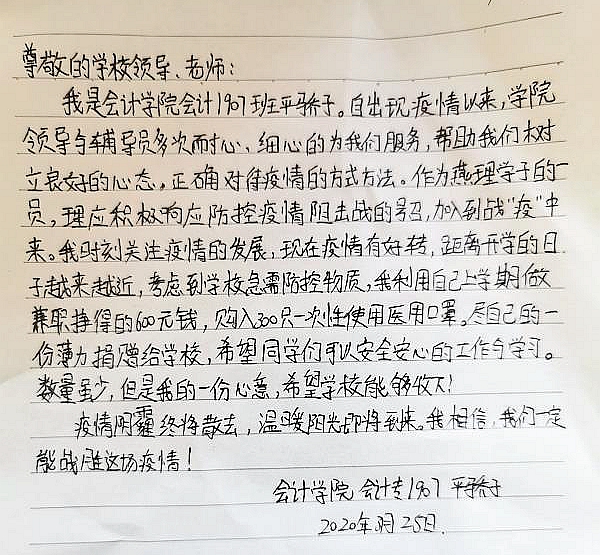 尊敬的学校领导、老师：
我是会计学院会计1907班平骄子。自出现疫情以来,学院
领导与辅导员多次耐心、细心的为我们服务,帮助我们树
立良好的心态。正确对待疫情的方式方法。作为燕理学子的一
员,理应积极响应防控疫情阻击战的号召,加入到战"疫"中
来。我时刻关注疫情的发展,现在疫情有好转,距离开学的日
子越来越近,考虑到学校急需防控物质,我利用自己上学期做
兼职挣得的600元钱,购入300只一次性使用医用口罩。尽自己的一
份薄力捐赠给学校,希望同学们可以安全安心的工作与学习。
数量虽少,但是我的一份心意,希望学校能够收下!
疫情阴霾终将散去,温暖阳光即将到来。我相信,我们一定
能战胜这场疫情!
会计学院 会计专1907
2020年 月25日.